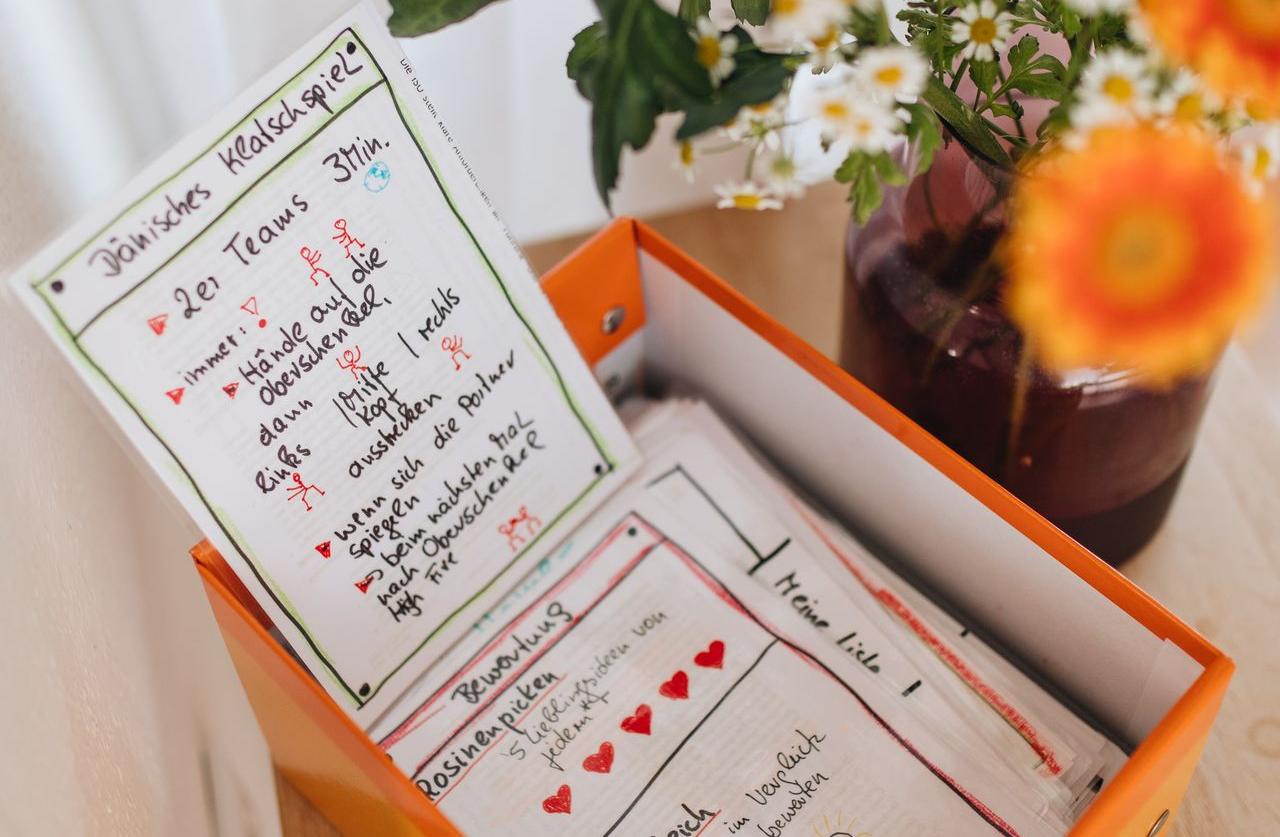 Dänisches Klatschspiel
3 Min.
2er Teams
immer: !
Hände auf die
Oberschenkel,
dann 1 Mitte 1 rechts
links Kopf
ausstrecken
wenn sich die Partner
spiegeln
beim nächsten Mal
nach Oberschenkel
High Five
Bewertung
Rosinenpicken
5 Lieblingsideen von
jedem
im Vergleich
bewerten
Meine